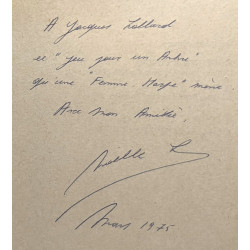 A Jacques Lallard
et "jeu pour un Ambre"
qu'une "Femme Harpe" mène
Avec mon Amitié.
Mars 1975